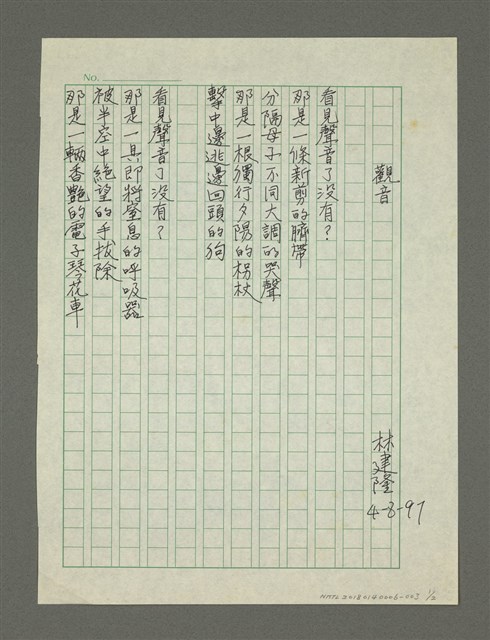 No.
觀音
林建隆
4-8-97
看見聲音了没有？
那是一條新剪的臍帶
分隔母子不同大調的哭聲
那是一根獨行夕陽的柺杖
擊中邊逃邊回頭的狗
看見聲音了没有？
那是一具即將窒息的呼吸器
被半空中絕望的手拔除
那是一輛香艷的電子琴花車
NMTL20180140006-003 1/2